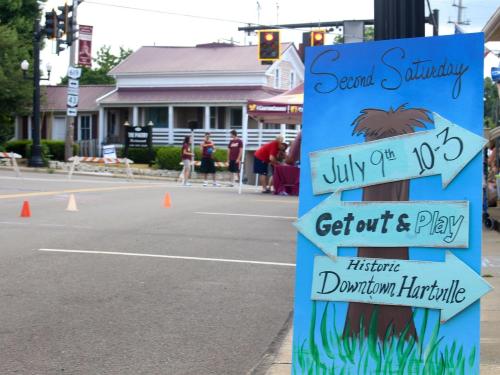 Second Saturday
July 9th 10-3
Get out & Play
Historic
Downtown Hartville